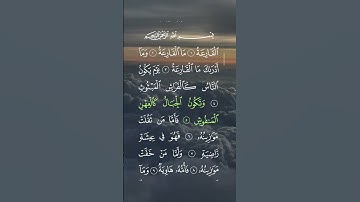 بِسْمِ اللَّهِ الرَّحْمَٰنِ الرَّحِيمِ
الْقَارِعَةُ ١ مَا الْقَارِعَةُ ٢ وَمَا
أَدْرَىٰكَ مَا الْقَارِعَةُ ٣ يَوْمَ يَكُونُ
النَّاسُ كَالْفَرَاشِ الْمَبْثُوثِ
٤ وَتَكُونُ الْجِبَالُ كَالْعِهْنِ
الْمَنفُوشِ ٥ فَأَمَّا مَن ثَقُلَتْ
مَوَازِينُهُ ٦ فَهُوَ فِي عِيشَةٍ
رَّاضِيَةٍ ٧ وَأَمَّا مَنْ خَفَّتْ
مَوَازِينُهُ ٨ فَأُمُّهُ هَاوِيَةٌ ٩ وَمَا